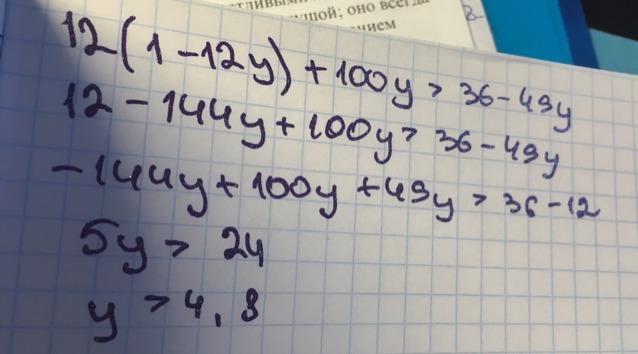 тливыми
шой; оно всегда
нием
12(1-12y)+100y > 36-49y
12-144y+100y > 36-49y
-144y+100y+49y > 36-12
5y > 24
y > 4,8